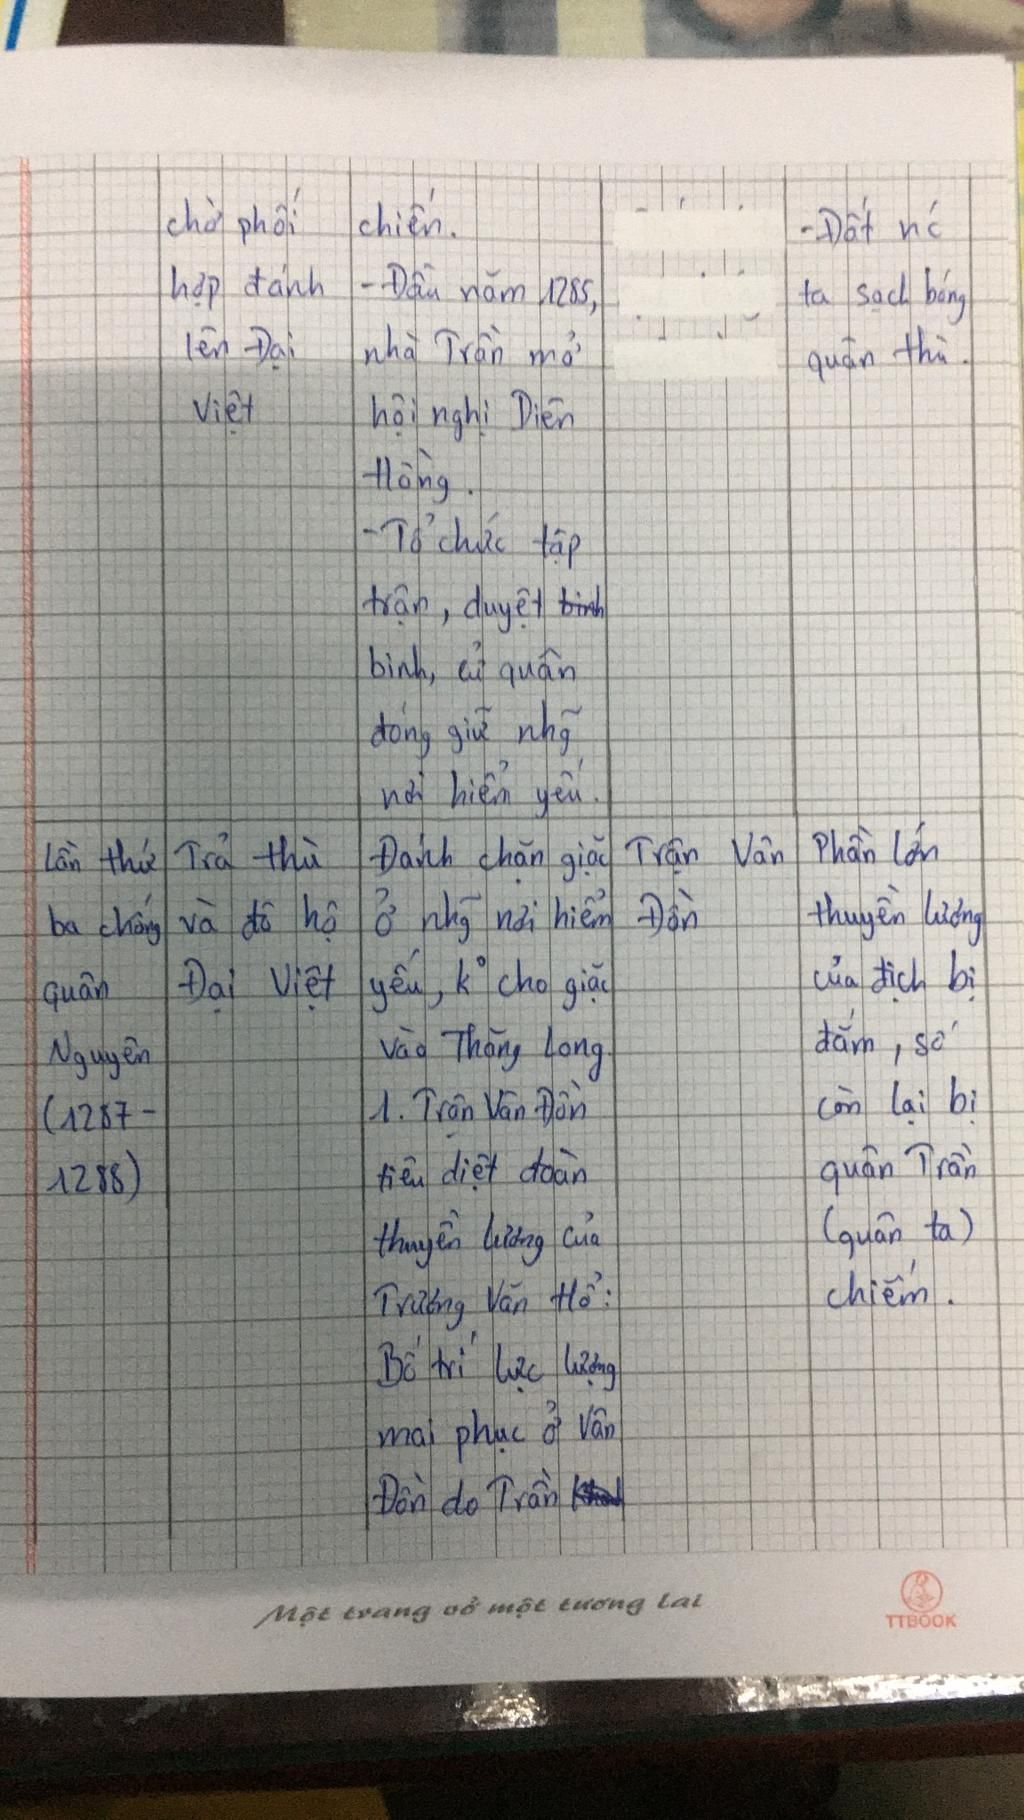 chờ phối
hợp đánh
lên Đại
Việt
chiến.
- Đầu năm 1285,
nhà Trần mở
hội nghị Diên
Hồng.
- Tổ chức tập
trận, duyệt binh
binh, cử quân
đóng giữ nhg̃
nơi hiểm yếu.
- Đất nć
ta sạch bóng
quân thù.
Lần thứ
ba chống
quân
Nguyên
(1287 -
1288)
Trả thù
và đô hộ
Đại Việt
Đánh chặn giặc
ở nhg̃ nơi hiểm
yếu, k° cho giặc
vào Thăng Long.
1. Trận Vân Đồn
tiêu diệt đoàn
thuyền lương của
Trương Văn Hổ:
Bố trí lực lượng
mai phục ở Vân
Đồn do Trần
Trận Vân
Đồn
Phần lớn
thuyền lương
của địch bị
đắm, số
còn lại bị
quân Trần
(quân ta)
chiếm.
Một trang vở một tương lai
TTBOOK